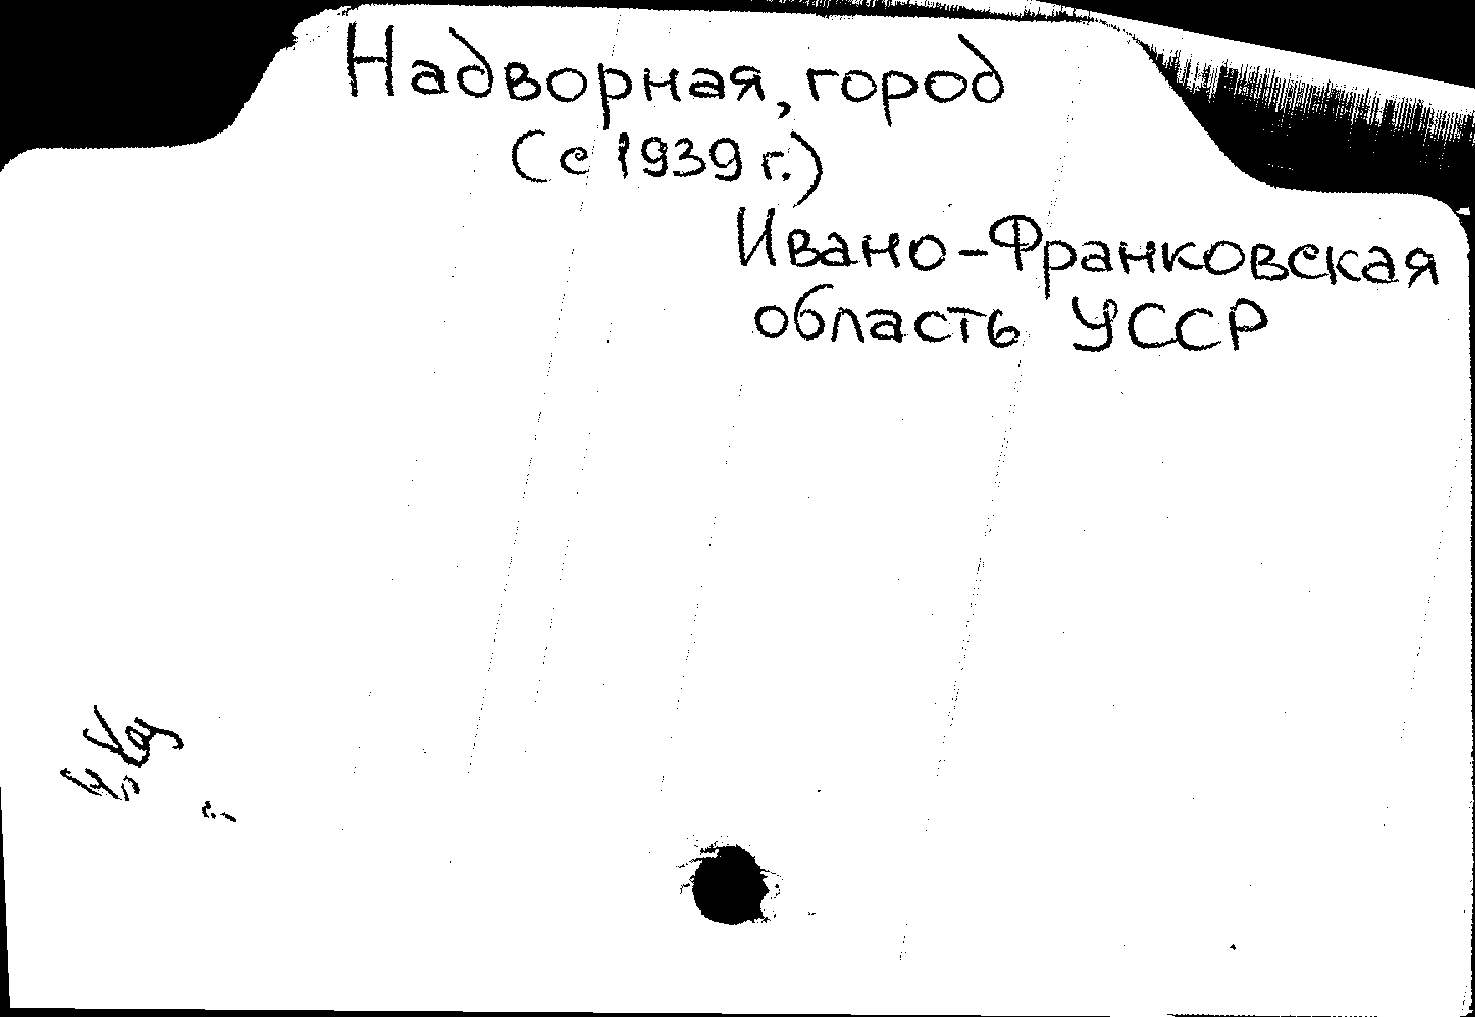 Надворная, город
(с 1939 г.)
Ивано-Франковская
область УССР